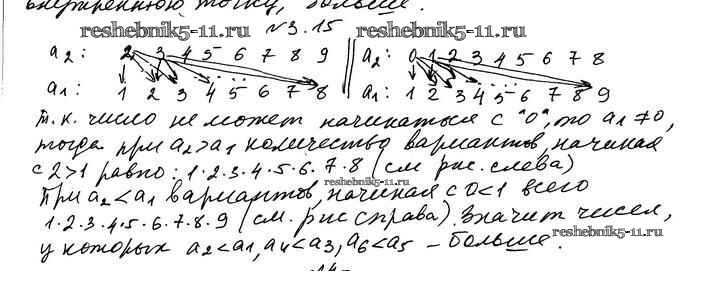 внутреннюю точку, больше.
reshebnik5-11.ru №3.15 reshebnik5-11.ru
a2: 2 3 4 5 6 7 8 9 a2: 0 1 2 3 4 5 6 7 8
a1: 1 2 3 4 5 6 7 8 a1: 1 2 3 4 5 6 7 8 9
т.к. число не может начинаться с "0", то a1≠0,
тогда при a2>a1 количество вариантов, начиная
с 2>1 равно: 1·2·3·4·5·6·7·8 (см рис. слева)
reshebnik5-11.ru
При a2<a1 вариантов, начиная с 0<1 всего
1·2·3·4·5·6·7·8·9 (см. рис справа). Значит чисел,
у которых a2<a1, a4<a3, a6<a5 – больше.
reshebnik5-11.ru